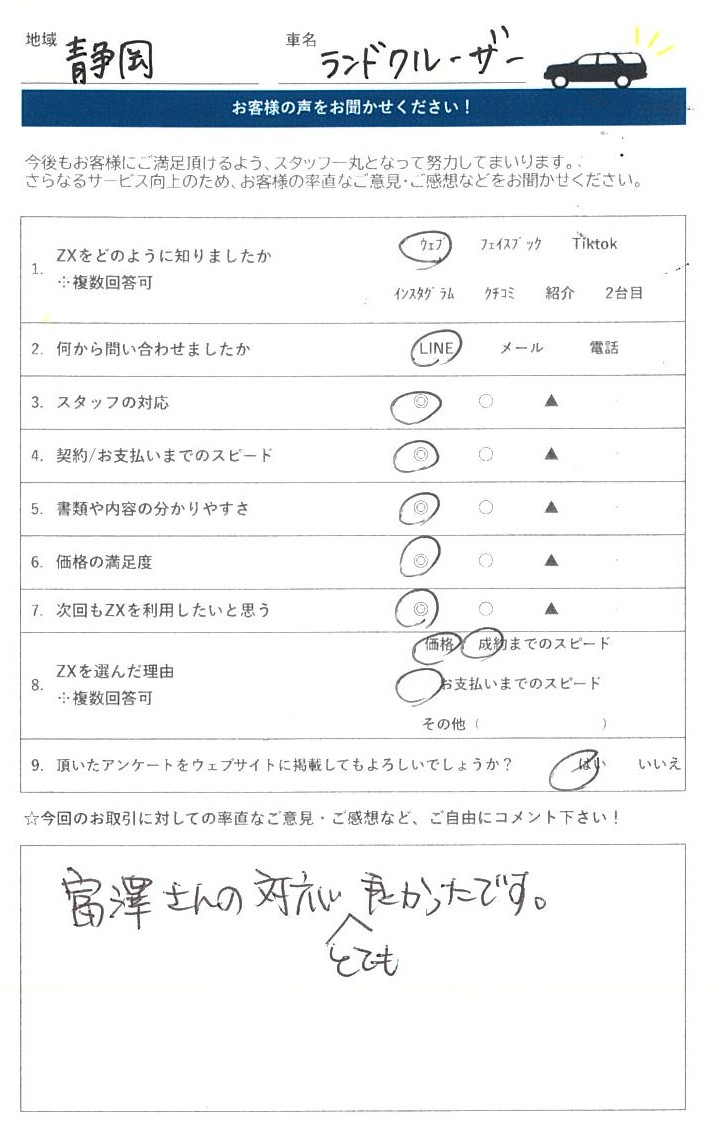 地域 静岡 車名 ランドクルーザー
お客様の声をお聞かせください！
今後もお客様にご満足頂けるよう、スタッフ一丸となって努力してまいります。
さらなるサービス向上のため、お客様の率直なご意見・ご感想などをお聞かせください。
1. ZXをどのように知りましたか
※複数回答可
ウェブ フェイスブック Tiktok
インスタグラム クチコミ 紹介 2台目
2. 何から問い合わせましたか LINE メール 電話
3. スタッフの対応 ◎ ○ ▲
4. 契約/お支払いまでのスピード ◎ ○ ▲
5. 書類や内容の分かりやすさ ◎ ○ ▲
6. 価格の満足度 ◎ ○ ▲
7. 次回もZXを利用したいと思う ◎ ○ ▲
8. ZXを選んだ理由
※複数回答可
価格 成約までのスピード
お支払いまでのスピード
その他（ ）
9. 頂いたアンケートをウェブサイトに掲載してもよろしいでしょうか？ はい いいえ
☆今回のお取引に対しての率直なご意見・ご感想など、ご自由にコメント下さい！
富澤さんの対応い 良かったです。
とても